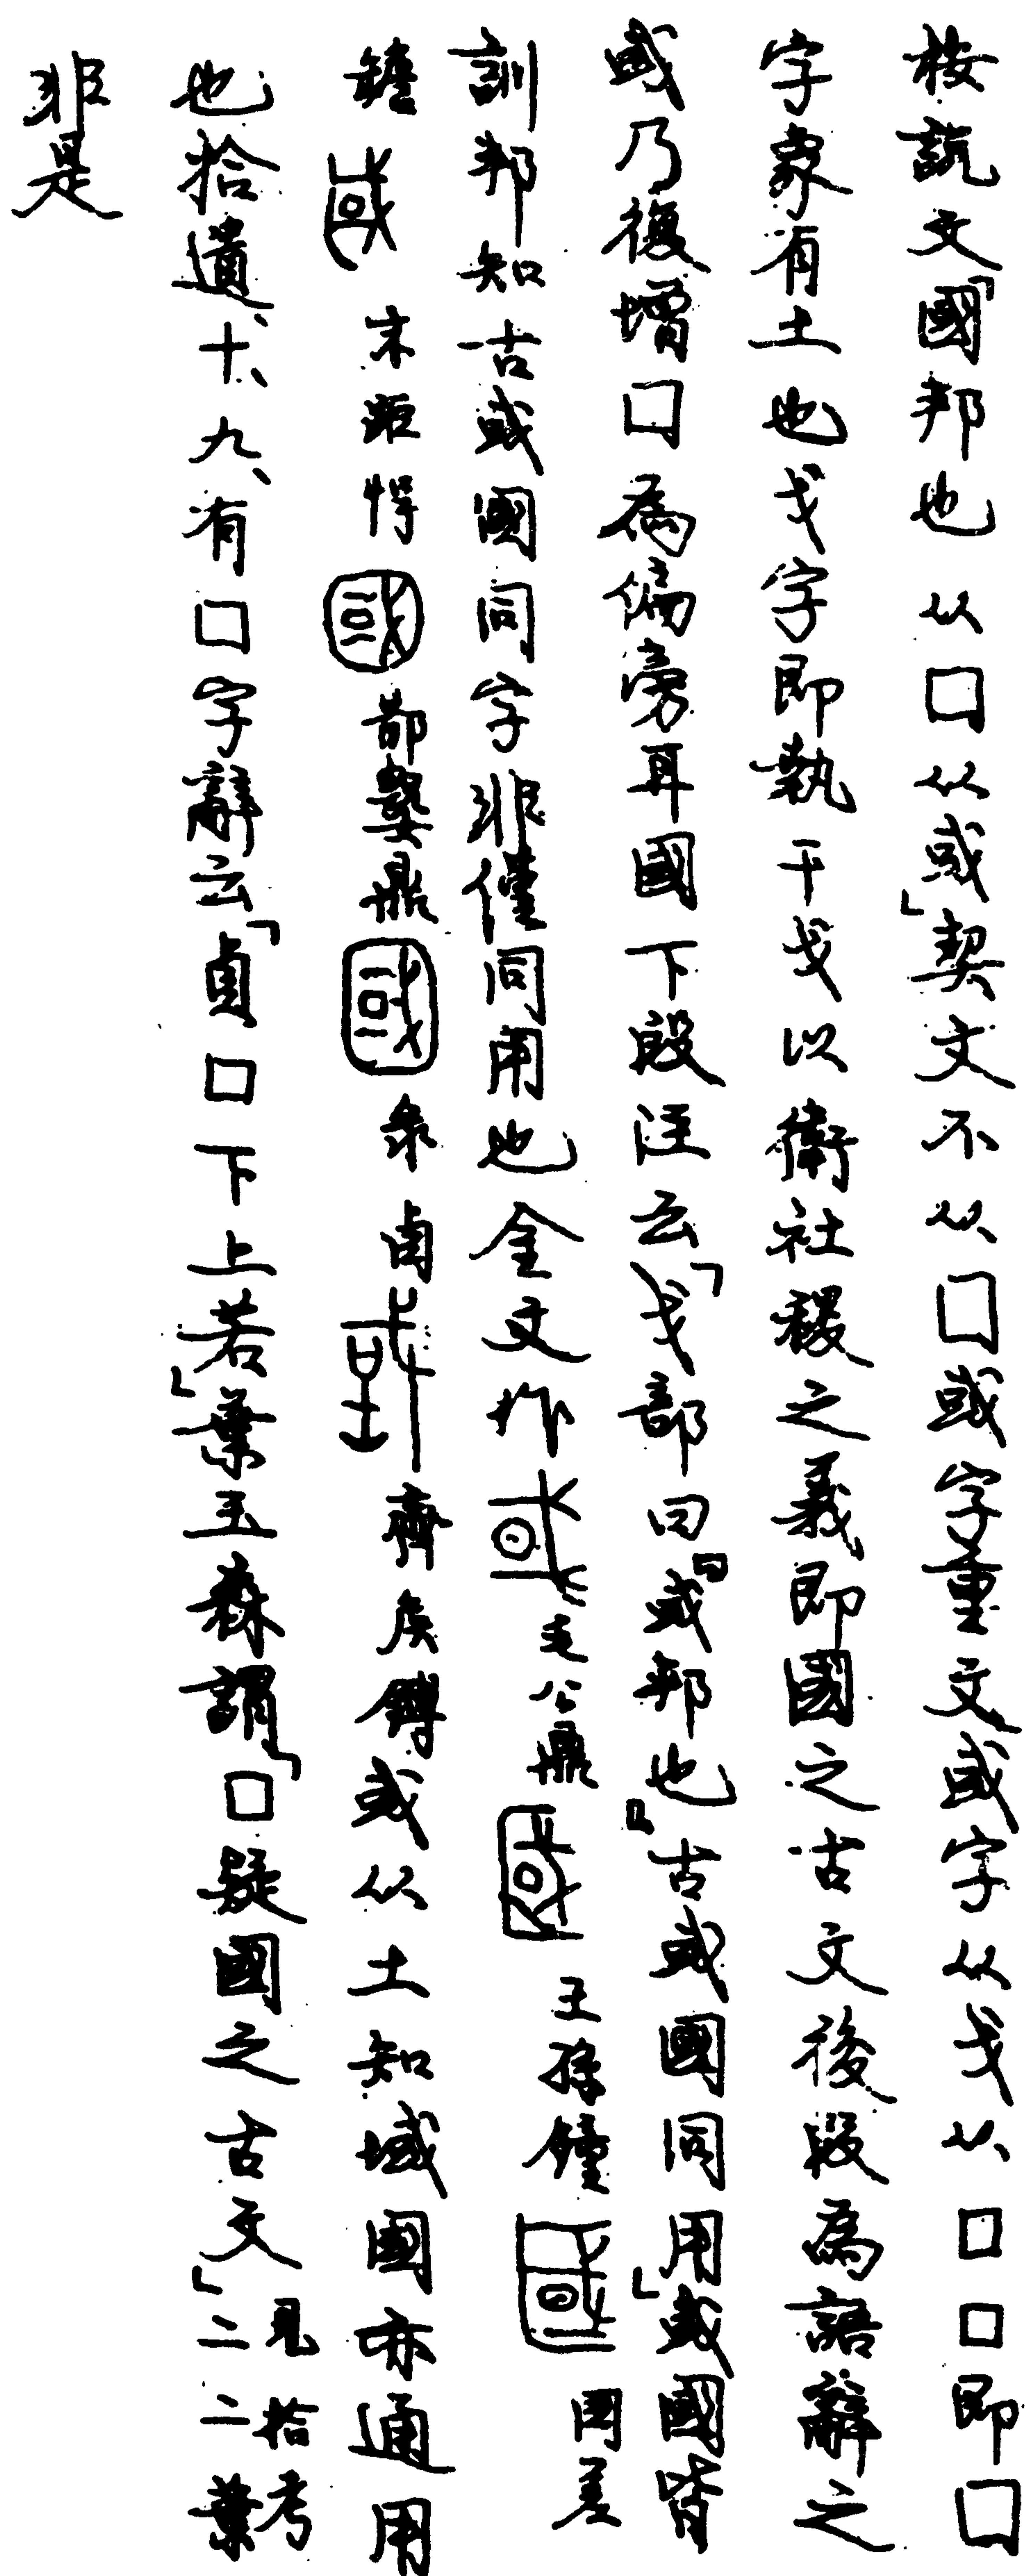 按說文「國邦也从囗从或」契文不从囗或字重文或字从戈从口口即囗
字象有土也戈字即執干戈以衛社稷之義即國之古文後段為語辭之
或乃復增囗為偏旁耳國下段注云「戈部曰『或邦也』古或國同用」或國皆
訓邦知古或國同字非僅同用也金文作 毛公鼎 王孫鐘 國差
𦉜 末距悍 鄀㜏鼎 彔卣 齊矦鎛或从土知域國亦通用
也拾遺、十、九、有囗字辭云「貞囗下上若」葉玉森謂「囗疑國之古文」見拾考二二葉
非是